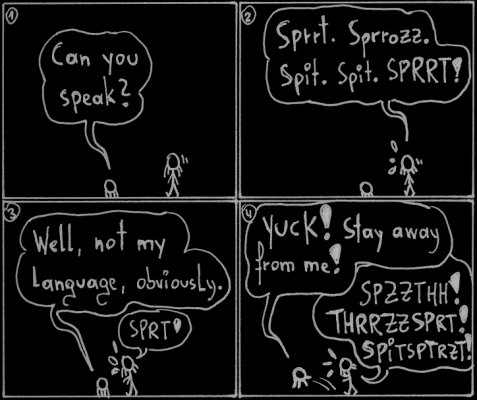 1
Can you
speak?
2
Sprrt. Sprrozz.
Spit. Spit. SPRRT!
3
Well, not my
Language, obviously.
SPRT!
4
YUCK! Stay away
from me!
SPZZTHH!
THRRZZSPRT!
SPITSPTRZT!